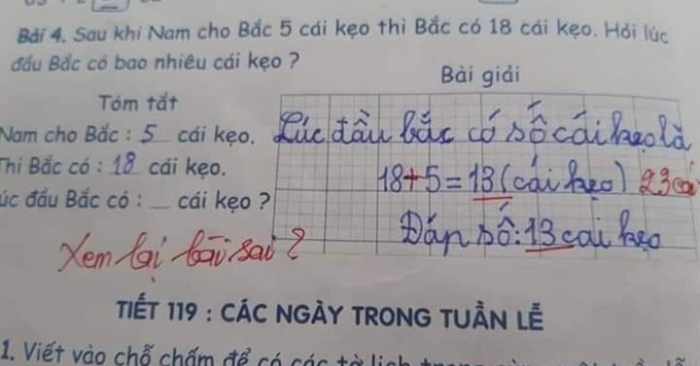 Bài 4. Sau khi Nam cho Bắc 5 cái kẹo thì Bắc có 18 cái kẹo. Hỏi lúc
đầu Bắc có bao nhiêu cái kẹo ?
Bài giải
Tóm tắt
Nam cho Bắc : 5 cái kẹo.
Thì Bắc có : 18 cái kẹo.
úc đầu Bắc có : __ cái kẹo ?
Lúc đầu bắc có số cái kẹo là
18+5=13 (cái kẹo) 23 cá
Đáp số: 13 cái kẹo
Xem lại bài sai?
TIẾT 119 : CÁC NGÀY TRONG TUẦN LỄ
1. Viết vào chỗ chấm để có các tờ lịch trong